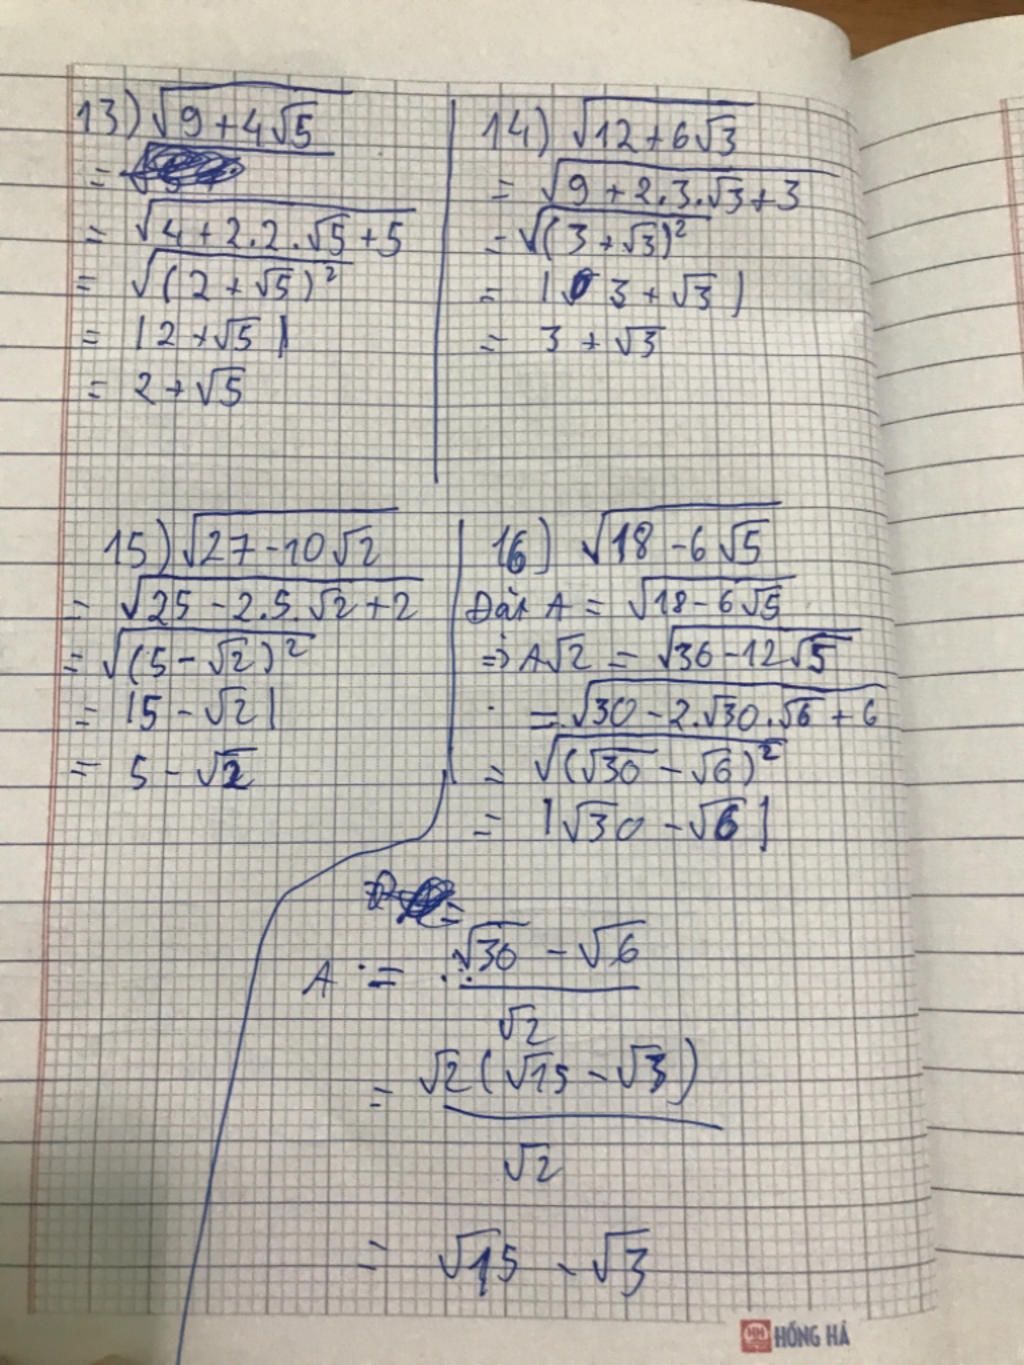 13) √(9+4√5)
=
= √(4+2.2.√5+5)
= √((2+√5)²)
= |2+√5|
= 2+√5
14) √(12+6√3)
= √(9+2.3.√3+3)
= √((3+√3)²)
= |3+√3|
= 3+√3
15) √(27-10√2)
= √(25-2.5.√2+2)
= √((5-√2)²)
= |5-√2|
= 5-√2
16) √(18-6√5)
Đặt A = √(18-6√5)
=> A√2 = √(36-12√5)
= √(30-2.√30.√6+6)
= √((√30-√6)²)
= |√30-√6|
A = (√30-√6)/√2
= √2(√15-√3)/√2
= √15-√3
HỒNG HÀ